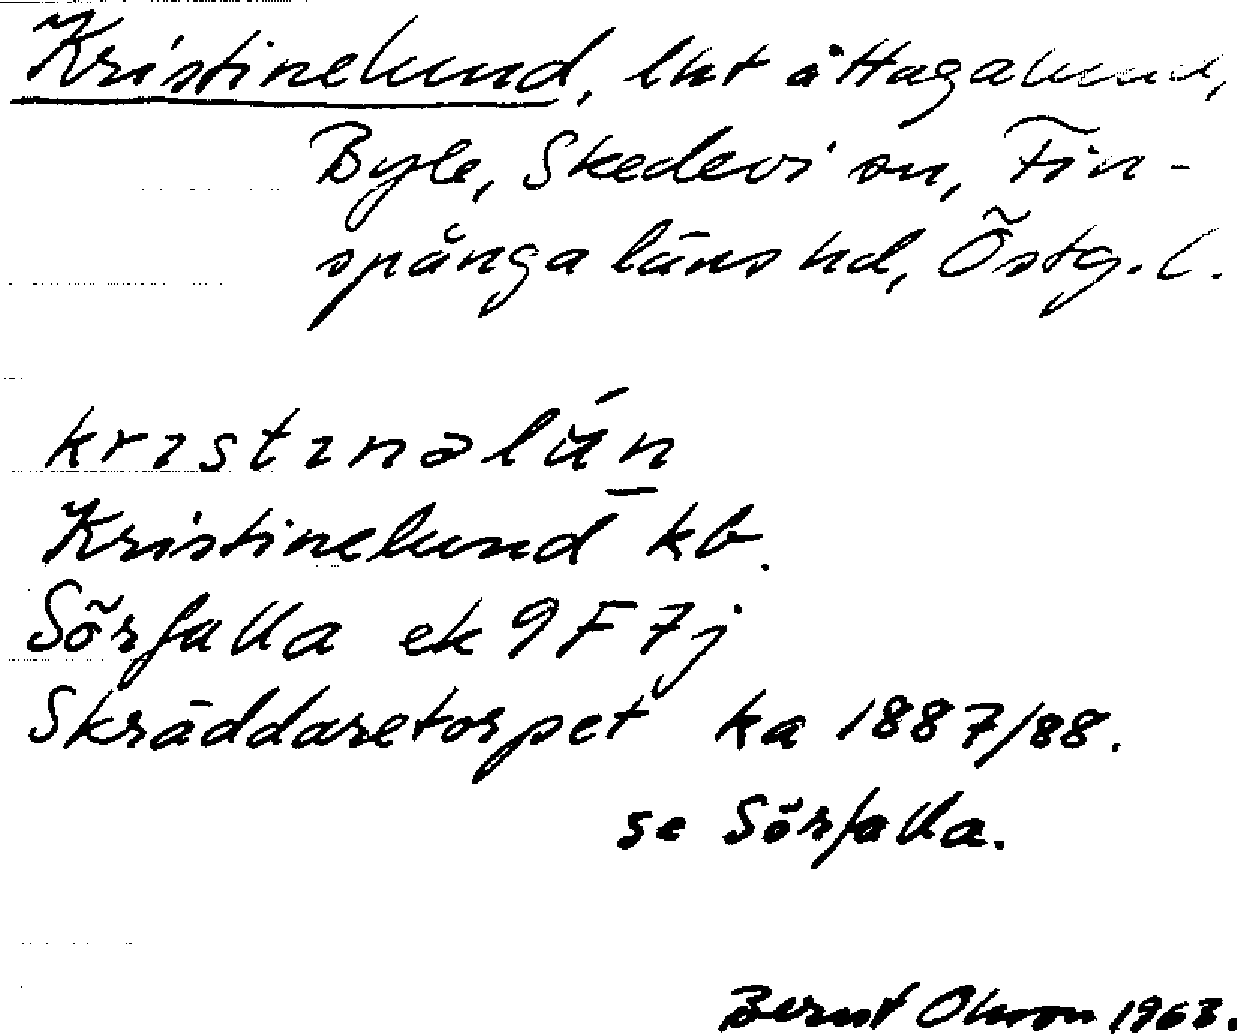 Kristinelund, lht å Hagalund,
Byle, Skedevi sn, Fin-
spånga läns hd, Östg. l.
krɪstɪnəlún
Kristinelund kb.
Sörfalla ek 9F7j
Skräddaretorpet ka 1887/88.
se Sörfalla.
Bernt Olsson 1963.